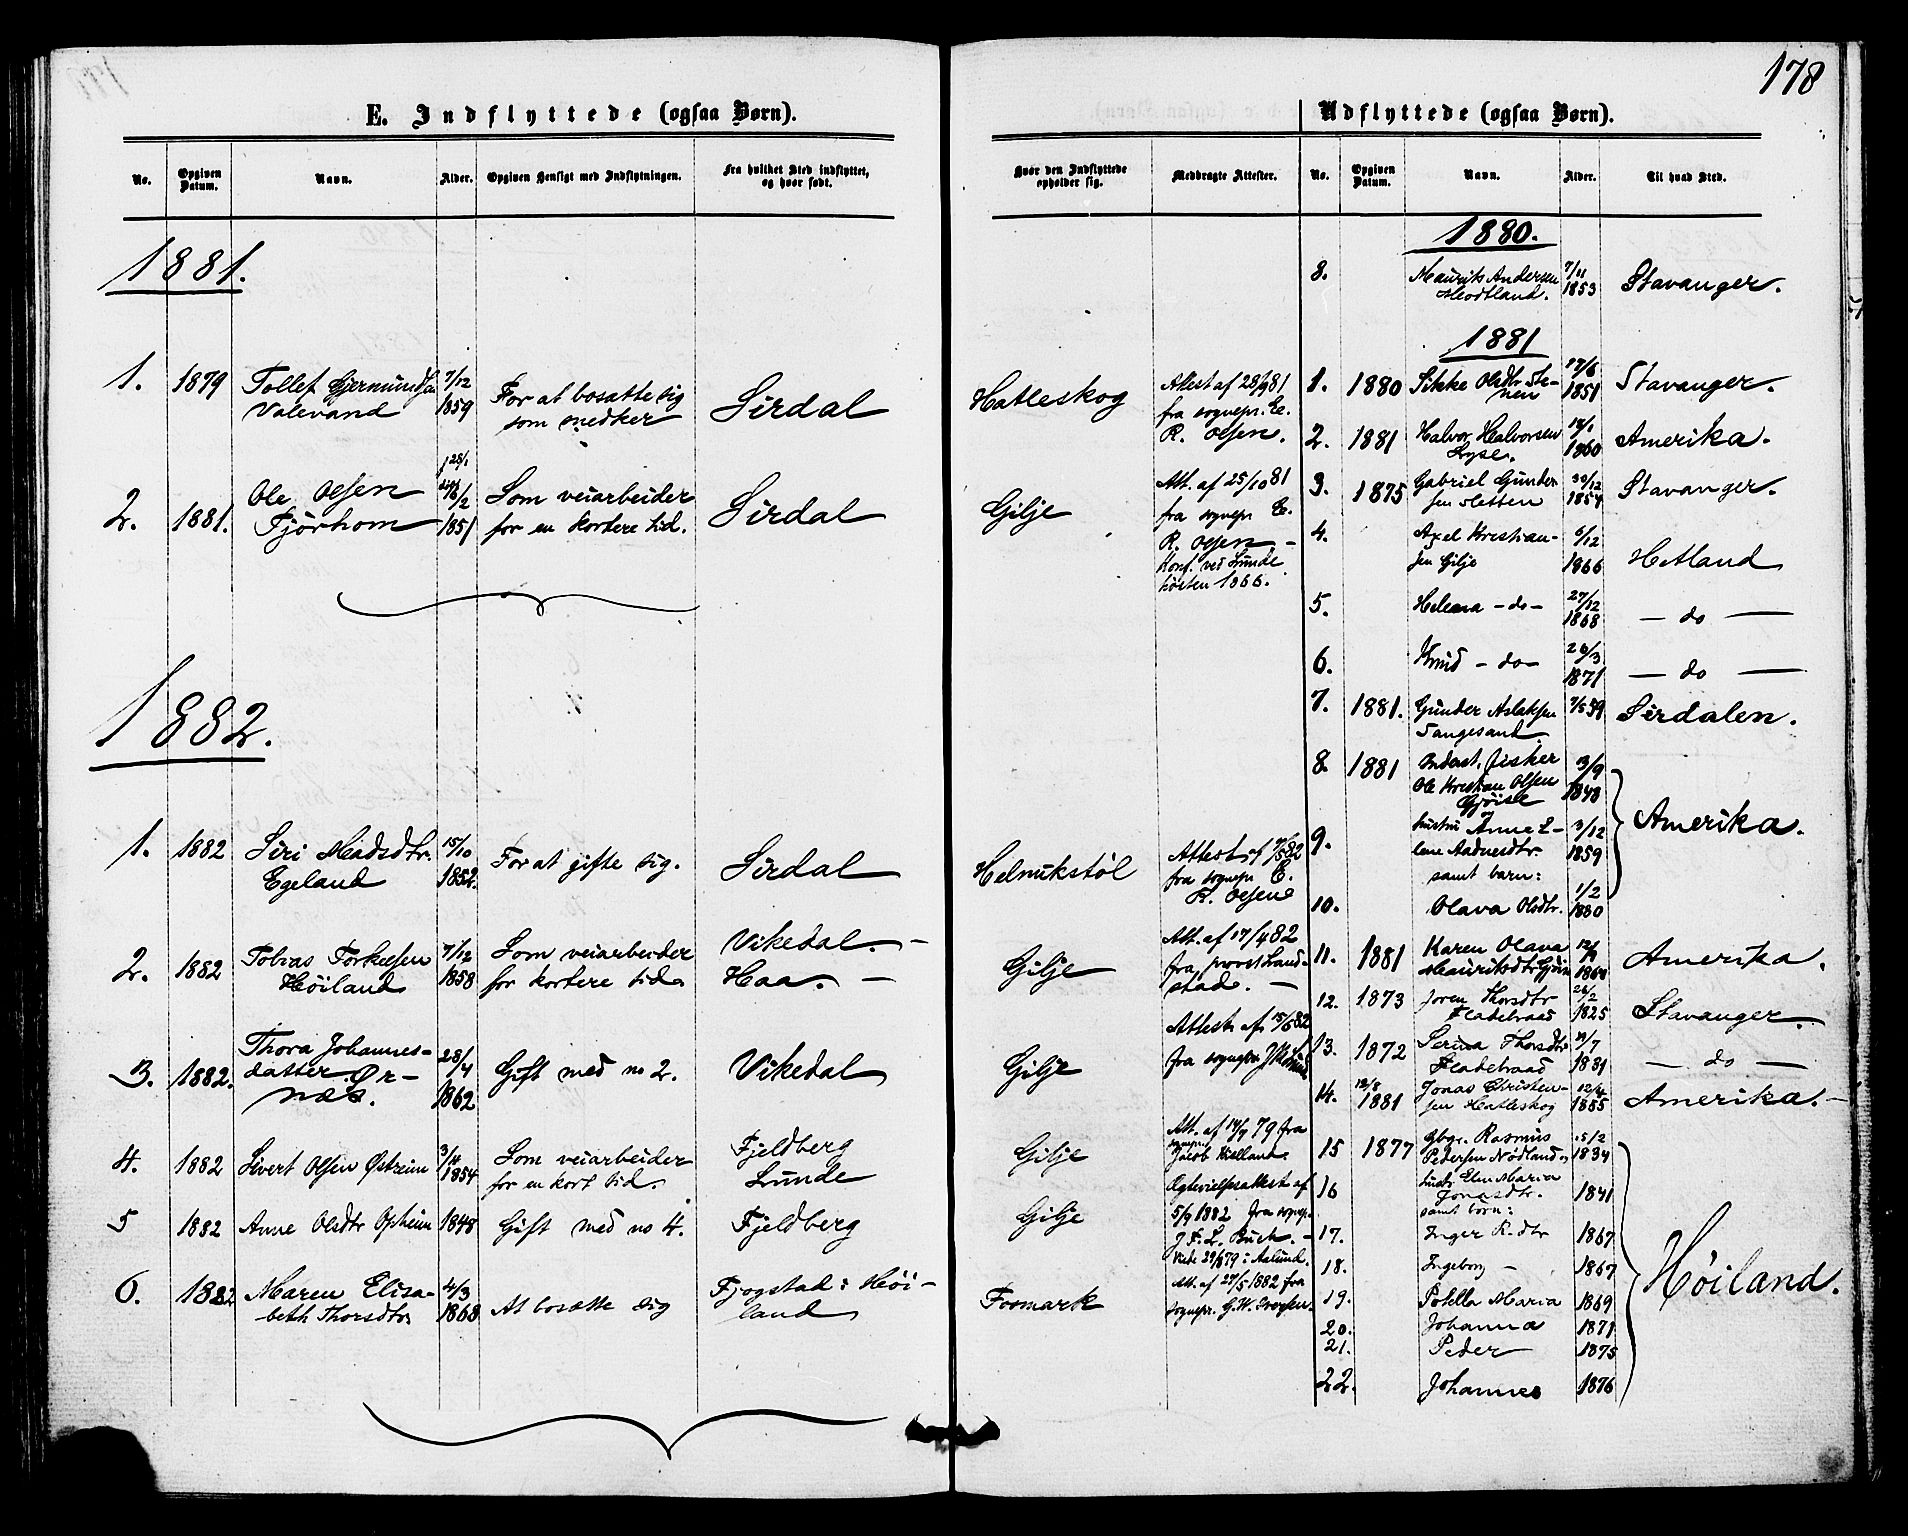 178
E. Indflyttede (ogsaa Børn).
No.
Opgiven Datum.
Navn.
Alder.
Opgiven Hensigt med Indflytningen.
Fra hvilket Sted indflyttet, og hvor født.
Hvor den Indflyttede opholder sig.
Medbragte Attester.
1881.
1. 1879 Tollef Gjermundsen 7/12 For at bosætte sig Sirdal Hatleskog Attest af 28/9 81
Valevand 1859 som snedker fra sognepr. E.
R. Olsen.
2. 1881. Ole Olsen Som veiarbeider Sirdal Gilje Att. af 25/10 81
Fjörhom 1851 for en kortere tid. fra sognepr. E.
R. Olsen –
Konf. ved Lunde
hösten 1866.
1882.
1. 1882 Siri Madsdtr. 15/10 For at gifte sig. Sirdal Helmikstöl Attest af 82
Egeland 1852. fra sognepr. E.
R. Olsen
2. 1882 Tobias Torkelsen 7/12 Som veiarbeider Vikedal. – Gilje Att. af 17/4 82
Höiland 1858 for kortere tid Haa. – fra provst Land-
stad. –
3. 1882. Thora Johannes- 28/4 Gift med no 2. Vikedal Gilje Attest af 15/6 82
datter Ør- 1862 fra sognepr.
næs.
4. 1882 Sivert Olsen Østreim 3/4 Som veiarbeider Fjeldberg Gilje Att. af 79 fra
1854 for en kort tid. Lunde sognepr. Jacob Kielland.
5 1882 Anne Olsdtr Opheim 1848 Gift med no 4. Fjeldberg Gilje Ægtevielsesattest af
5/9 1882 fra sognepr.
J. F. L. Buch. –
Viede 79 i Aalund.
6. 1882 Maren Elisa- 4/3 At bosætte sig Fjogstad i Høi- Fosmark Att. af 27/5 1882 fra
beth Thorsdtr 1868 land sognepr. G. W.
Udflyttede (ogsaa Børn).
No.
Opgiven Datum.
Navn.
Alder.
Til hvad Sted.
1880.
8. Maurits Andersen 7/11 Stavanger.
Modtland. 1853
1881
1. 1880 Sikke Olsdtr Ste- 17/6 Stavanger.
nen 1851
2. 1881 Halvor Halvorsen 18/1 Amerika.
Lyse. 1860
3. 1875 Gabriel Gunder- 30/12 Stavanger.
sen Sletten 1854
4. Axel Kristian- 6/12 Hetland
sen Gilje 1866
5. Helena – do – 27/12 – do –
1868
6. Knud – do – 26/3 – do –
1871
7. 1881. Gunder Aslaksen 59 Sirdalen.
Tangesand
8. 1881 Inderst. fisker 3/9 Amerika.
Ole Kristian Olsen 1848
Gjöise
9. hustru Anne E- 3/12
lene Aadnesdtr. 1859
samt barn:
10. Olava Olsdtr. 1/2 1880
11. 1881 Karen Olava Amerika.
Mauritsdtr Gjöise 1864
12. 1873 Joren Thorsdtr 26/2 Stavanger.
Fladebraad 1825
13. 1872 Serina Thorsdtr – do –
Fladebraad
14. 12/8 1881 Jonas Christen- Amerika. –
sen Hatleskog 1855
15 1877 Gbgr. Rasmus 15/2 Høiland.
Pedersen Nødland og 1834
16 hustr Elen Maria
Jonasdtr. 1841
samt born:
17. Inger R.dtr 1867
18. Ingeborg – 1867
19. Maria 1869
20. Johanna 1871
21. Peder 1875
22. Johannes 1876